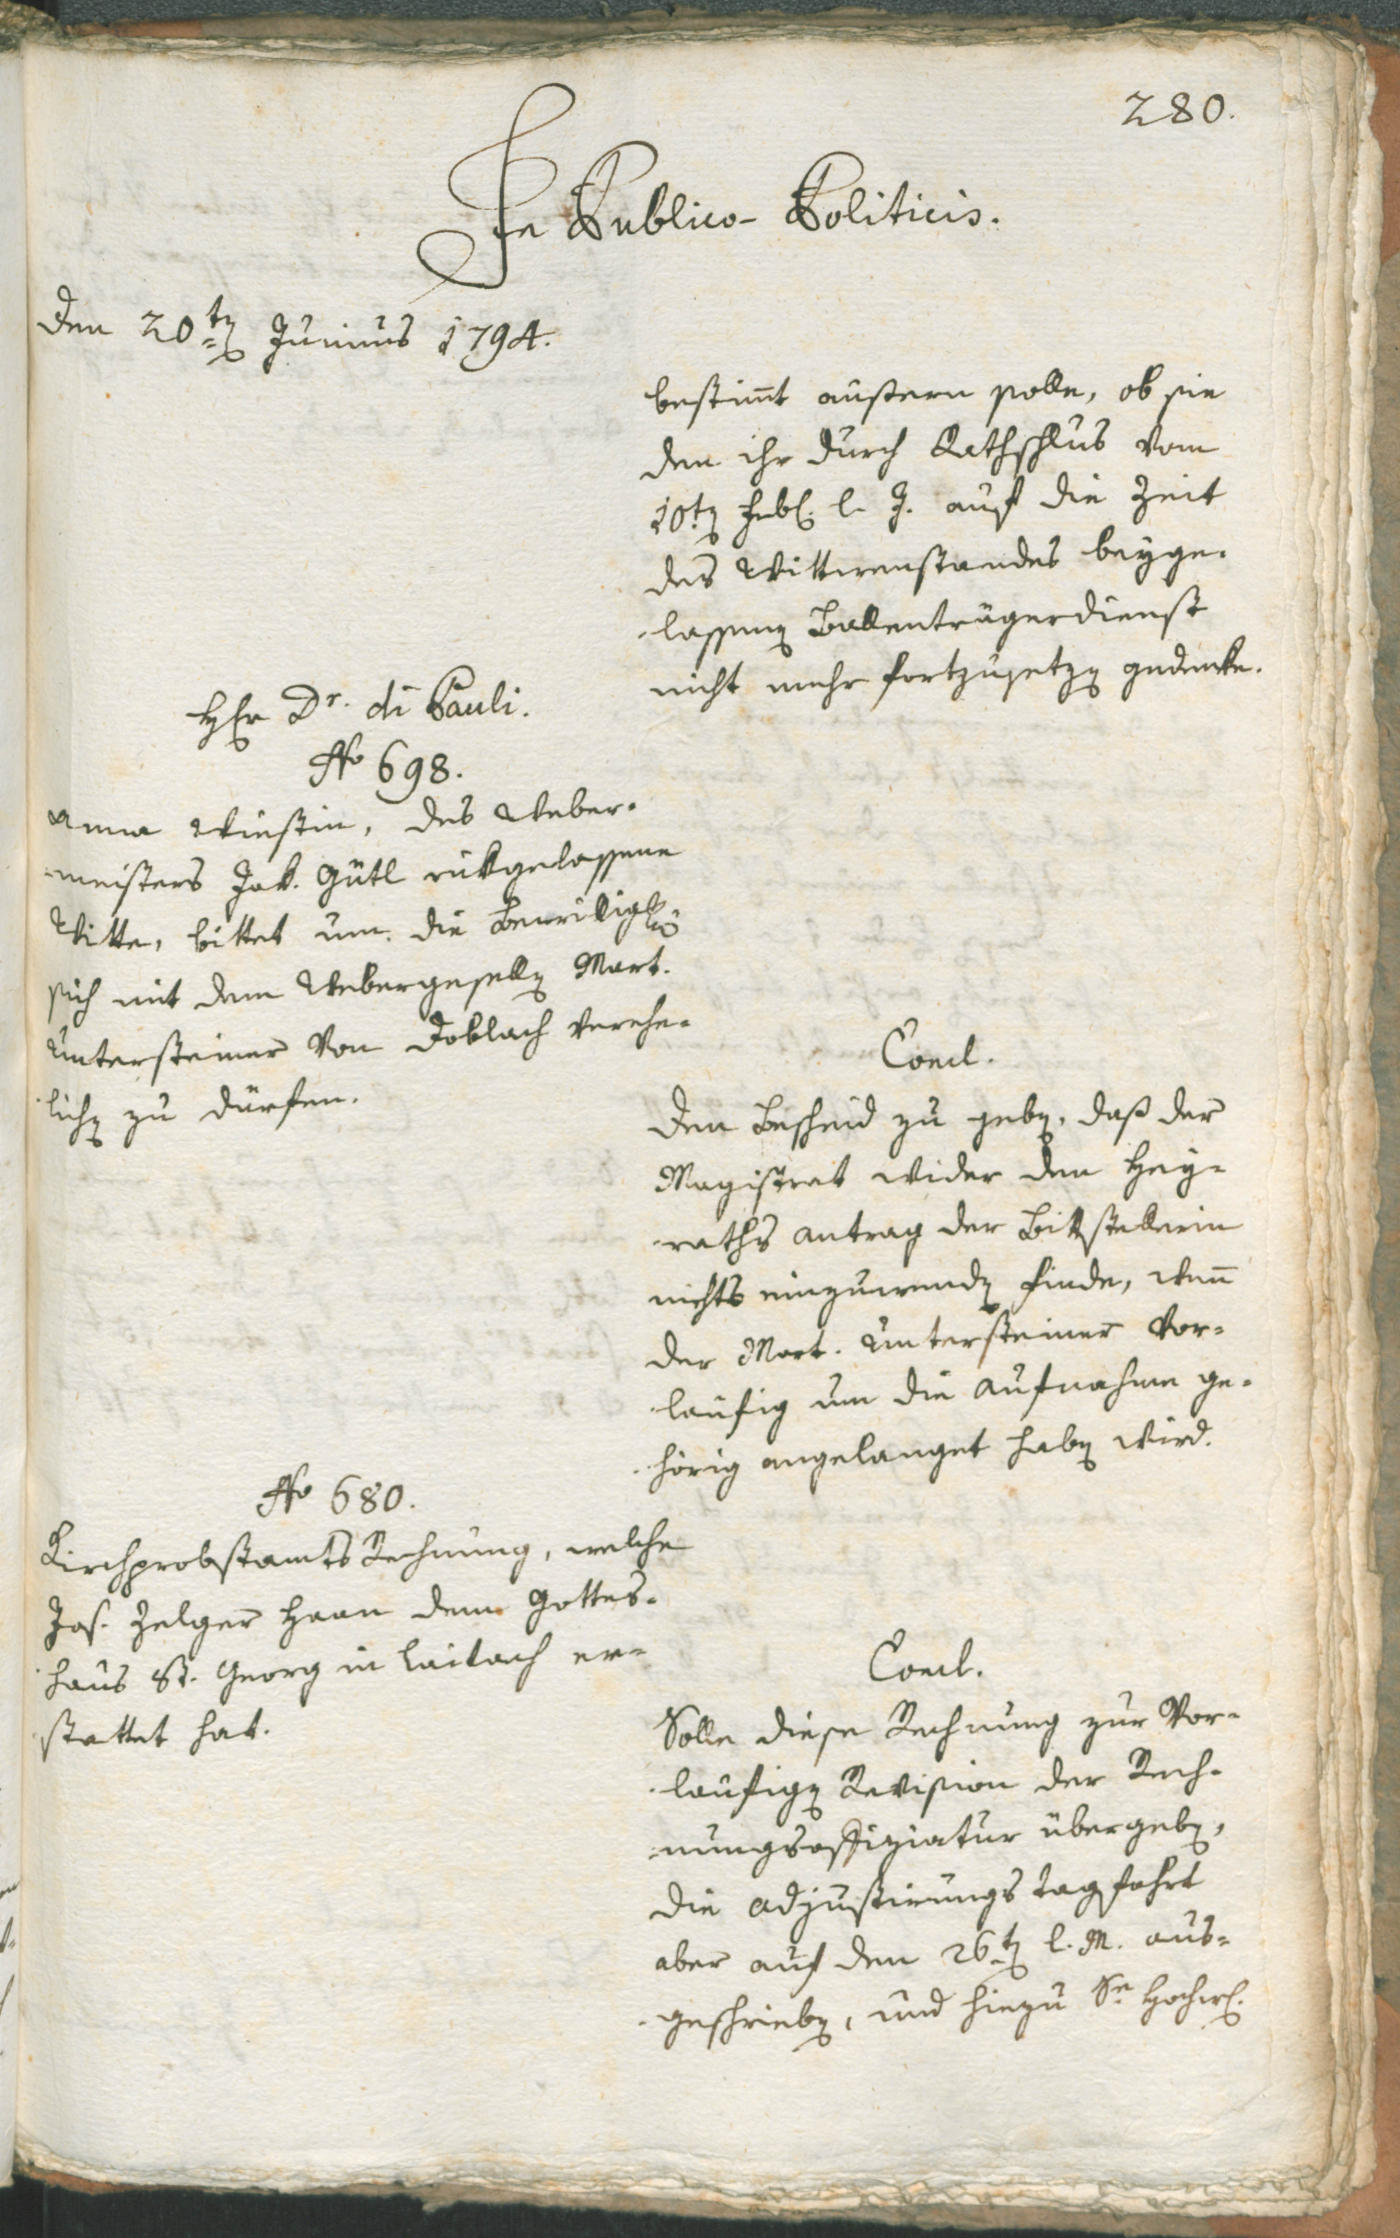 280.
In Publico-Politicis.
Den 20ten Junius 1794.
bestimt äußern solle, ob sie
den ihr durch Rathschlus vom
10ten Febr. l. J. auf die Zeit
des Wittwenstandes beyge-
lassenen Ballenträgerdienst
nicht mehr fortzusetzen gedenke.
Hr Dr. di Pauli.
No 698.
Anna Wiestin, des Weber-
meisters Jak. Gütl rükgelassene
Witte, bittet um die Bewilligung
sich mit dem Webergesellen Mart.
Untersteiner von Doblach verehe-
lichen zu dürfen.
Concl.
Den Bescheid zu geben, daß der
Magistrat wider den Hey-
raths Antrag der Bittstellerin
nichts einzuwenden finde, wenn
der Mart. Untersteiner vor-
läufig um die Aufnahme ge-
hörig angelanget haben wird.
No 680.
Kirchprobstamts Rechnung, welche
Jos. Zelger Haan dem Gottes-
haus St. Georg in Laitach er-
stattet hat.
Concl.
Solle diese Rechnung zur vor-
läufigen Revision der Rech-
nungsoffiziatur übergeben,
die Adjustirungs Tagfahrt
aber auf den 26ten l. M. aus-
geschrieben, und hiezu Se Hochw.